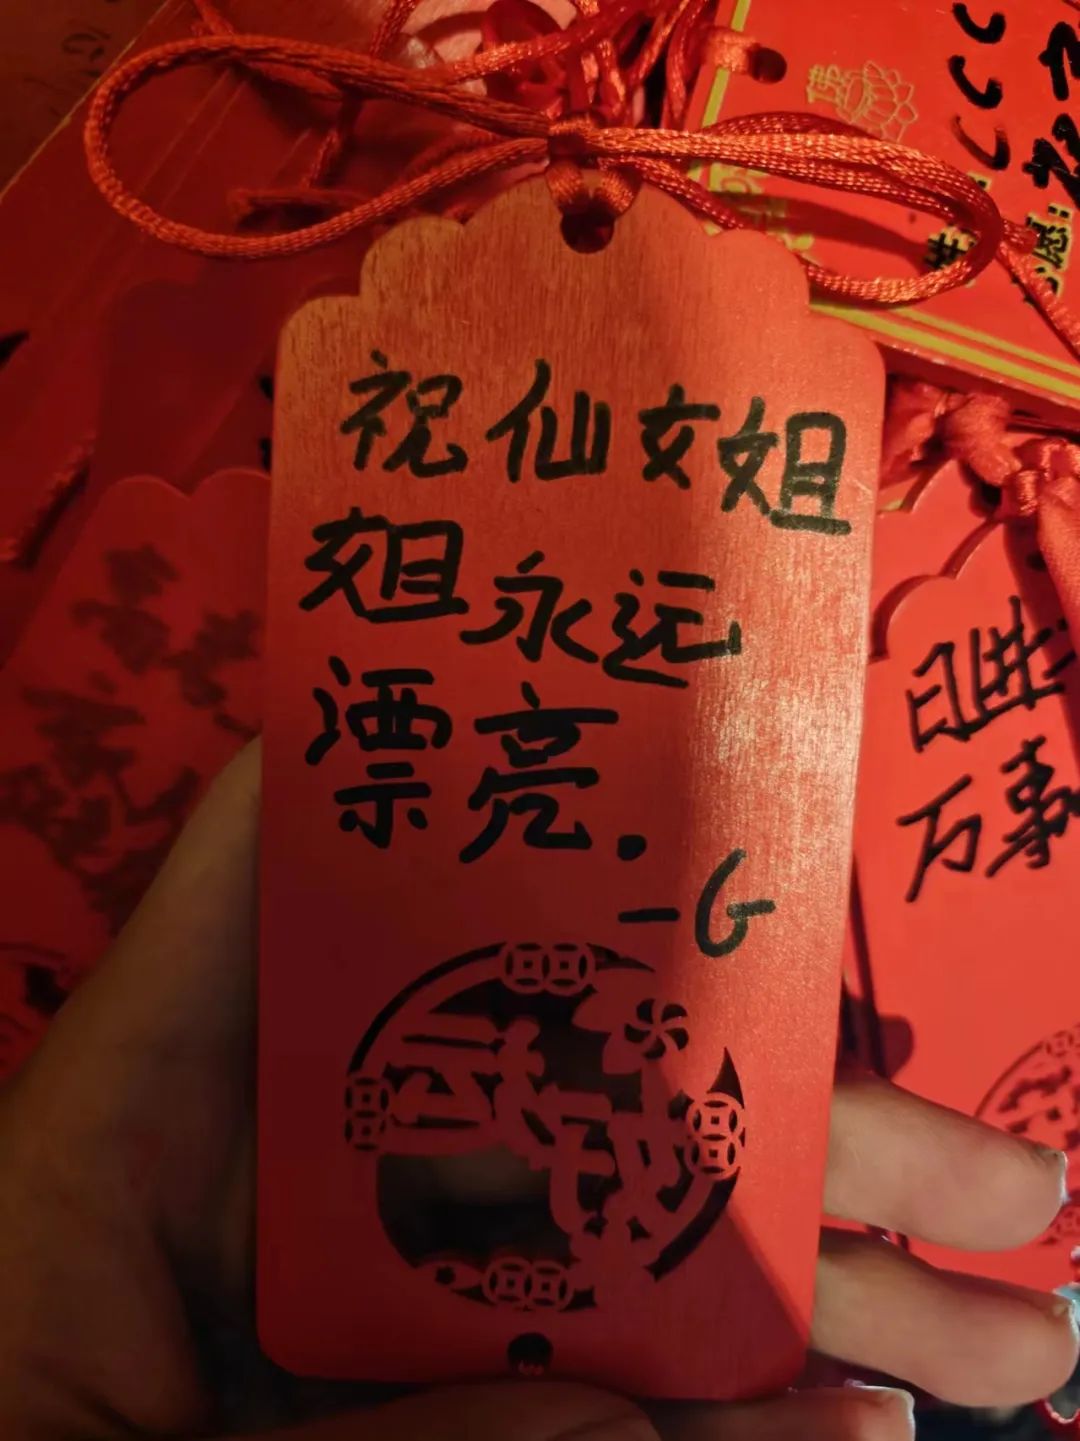 祝仙女姐
姐永远
漂亮.
-G
万事